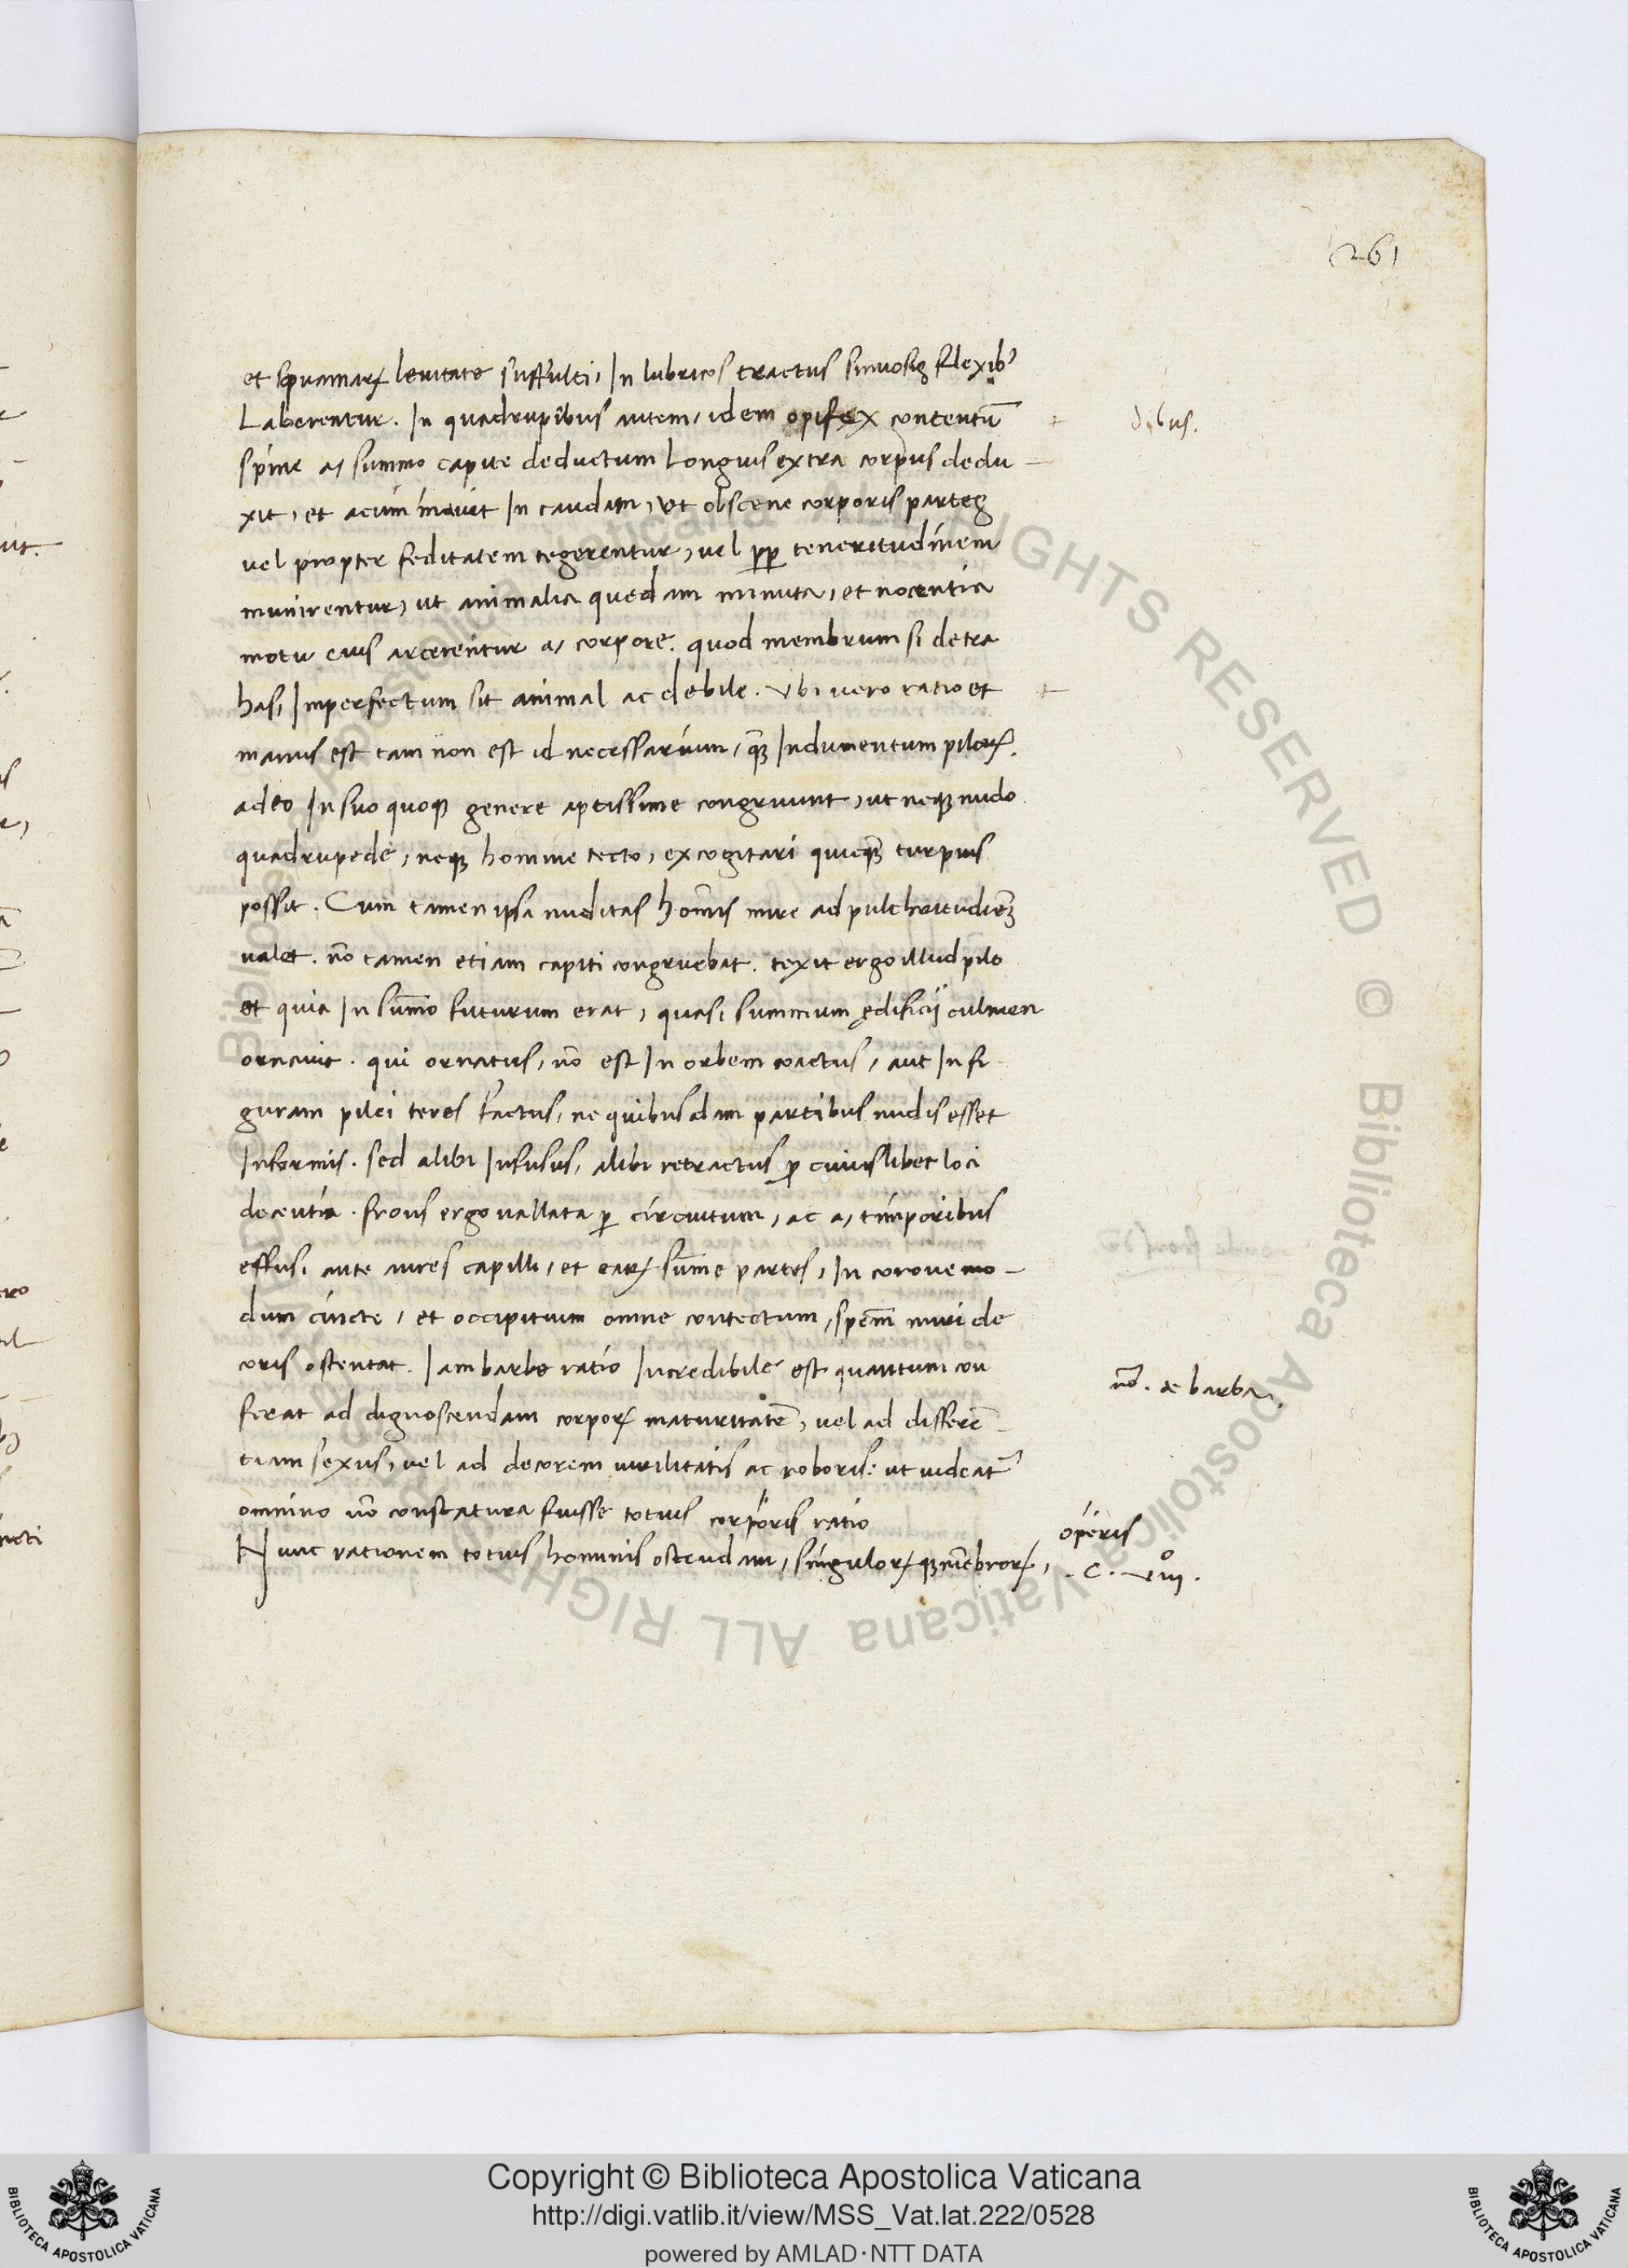 261
et squamaꝝ leuitate suffulti, In lubricos tractus sinuosis flexibꝰ
Laberentur. In quadrupibus autem, idem opifex contentū
dibus.
spine a, summo capite deductum Longius extra corpus dedu
xit, et acuminauit In caudam, vt obscene corporis partes
vel propter feditatem tegerentur, vel ꝓꝑ teneritudinem
munirentur, ut animalia quedam minuta, et nocentia
motu eius arcerentur a, corpore. quod membrum si detra
has, Imperfectum sit animal ac debile. Vbi vero ratio et
manus est tam non est id necessarium, qꝫ Indumentum piloꝝ.
adeo In suo quoqꝫ genere aptissime congruunt, ut neqꝫ nudo
quadrupede, neqꝫ homine tecto, excogitari quicqꝫ turpius
possit. Cum tamen ipsa nuditas hoīnis mire ad pulchritudiēꝫ
valet. nō tamen etiam capiti congruebat. texit ergo illud pilo
et quia In sūmo futurum erat, quasi summum ędificij culmen
ornauit. qui ornatus, nō est In orbem coactus, aut In fi
guram pilei teres factus, ne quibusdam partibus nudis esset
Informis. sed alibi Infusus, alibi retractus ꝓ cuiuslibet loci
decentia. frons ergo uallata ꝑ circuitum, ac a, timporibus
effusi ante aures capilli, et eaꝝ sūme partes, In corone mo-
dum cincte, et occipitium omne contectum, spēm miri de
coris ostentat. Iam barbe ratio Incredibile est quantum con
nō. de barba.
ferat ad dignoscendam corpoꝝ maturitatē, vel ad differē-
tiam sexus, vel ad decorem uirilitatis ac roboris: ut uideat᷑
omnino nō constatura fuisse totius corporis ratio
operis
Nunc rationem totius hominis ostendam, singuloꝝ qꝫ mēbroꝝ,
.C. viijº.
© Biblioteca Apostolica Vaticana ALL RIGHTS RESERVED © Biblioteca Apostolica Vaticana ALL RIGHTS RESERVED
Copyright © Biblioteca Apostolica Vaticana
http://digi.vatlib.it/view/MSS_Vat.lat.222/0528
powered by AMLAD·NTT DATA
BIBLIOTECA APOSTOLICA VATICANA
BIBLIOTECA APOSTOLICA VATICANA